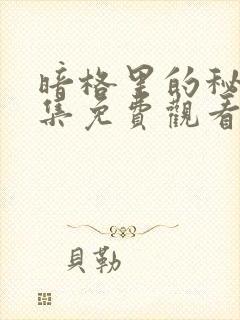 暗格里的秘
集免費觀看
貝勒